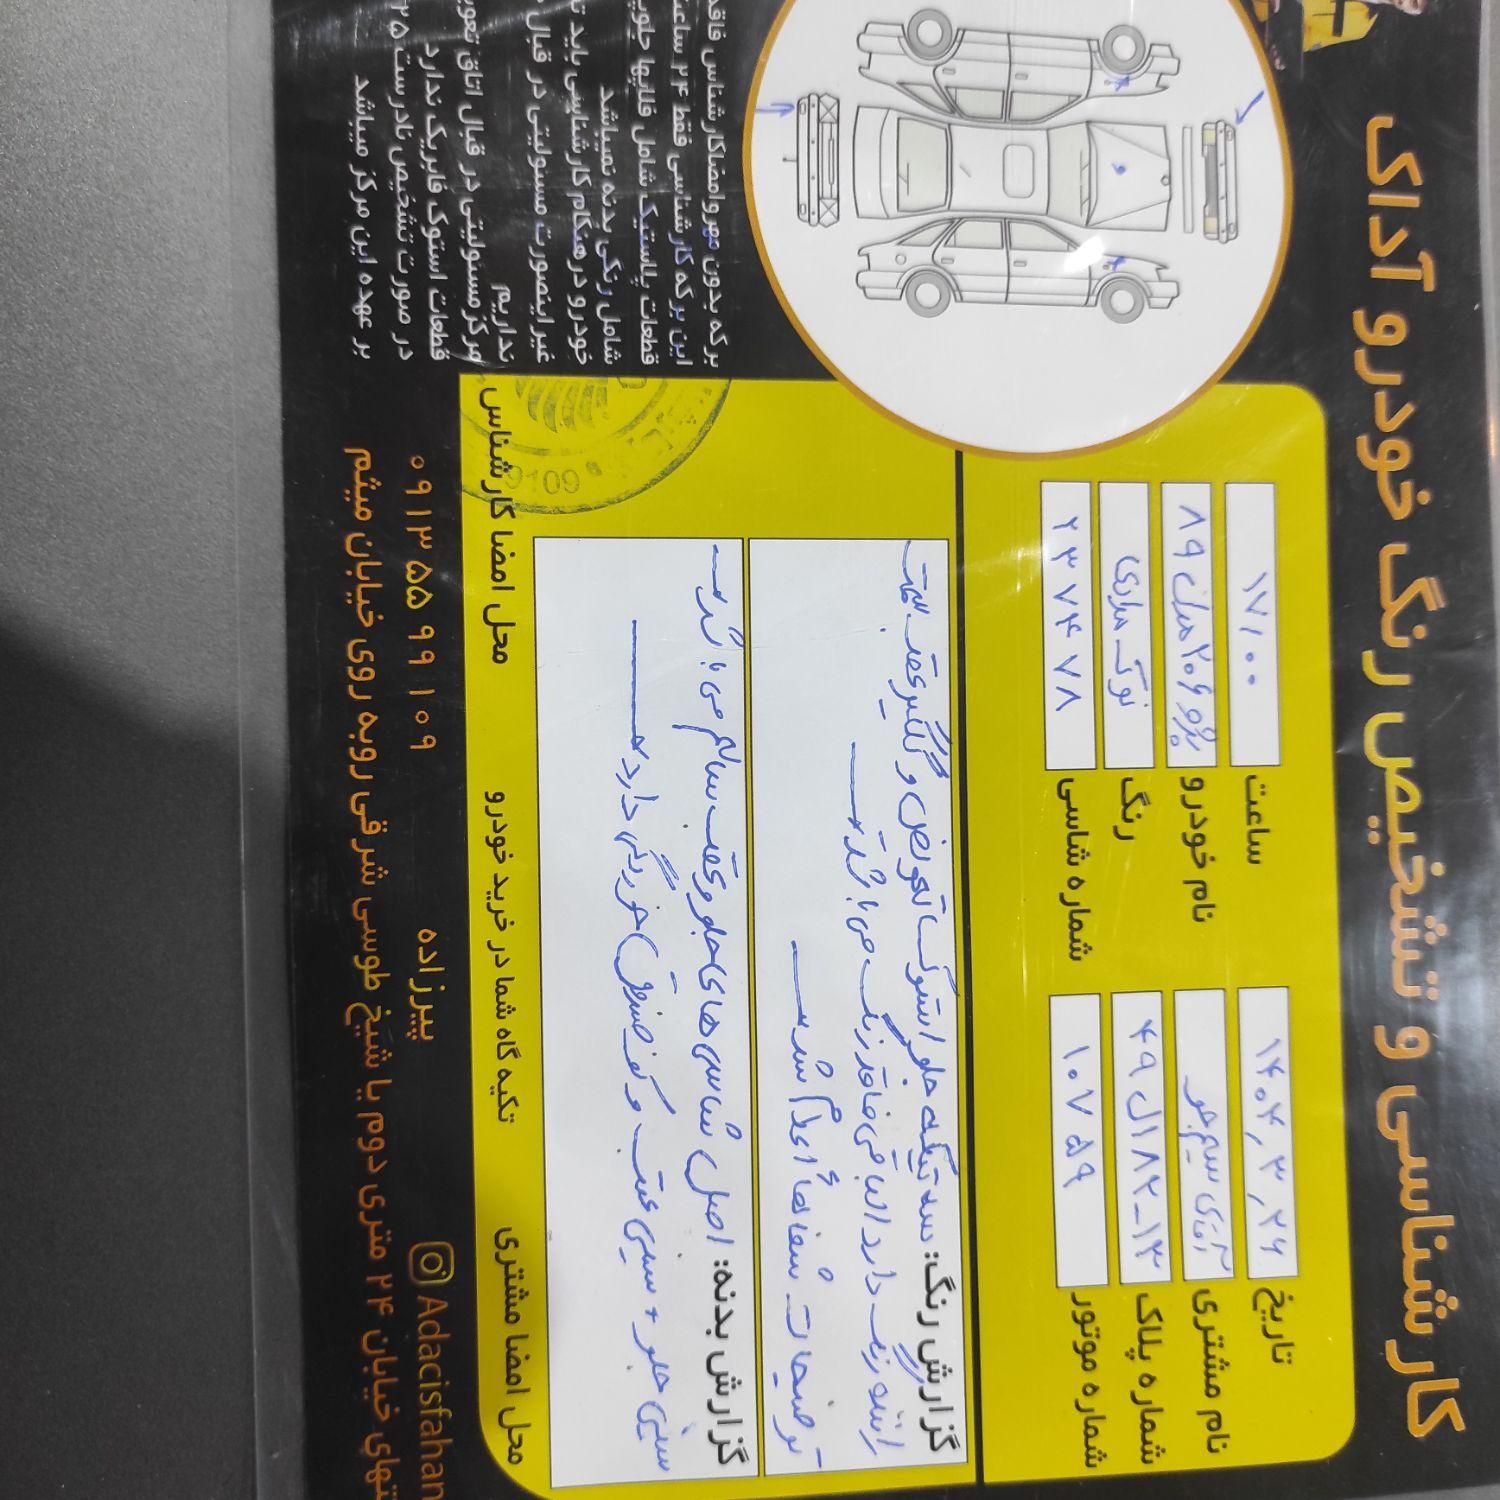 کارشناسی و تشخیص رنگ خودرو آداک
تاریخ ۱۴۰۴,۳,۲۶
ساعت ۱۷/۰۰
نام مشتری آقای
نام خودرو پژو ۲۰۶ مدل ۸۹
شماره پلاک ۱۳-۱۸۲ل۴۹
رنگ نوک مدادی
شماره موتور ۱۰۷۵۹
شماره شاسی ۲۳۷۴۷۸
گزارش رنگ: سه تیکه جلو استوک تعویض و گلگیر عقب سمت
راننده رنگ دارد الباقی فاقد رنگ می باشد
توضیحات شفاها اعلام شد
گزارش بدنه: اصل شاسی های جلو و عقب سالم می باشد
سینی جلو + سینی عقب و کف صندوق خوردگی دارد
محل امضا مشتری
تکیه گاه شما در خرید خودرو
محل امضا کارشناس
9109
برگه بدون مهر و امضا کارشناس فاقد
این برگه کارشناسی فقط ۲۴ ساعت
قطعات پلاستیک شامل قلابها جلوپ
شامل رنگی بدنه نمیباشد
خودرو در هنگام کارشناسی باید ت
غیر اینصورت مسئولیتی در قبال
نداریم
مرکز مسئولیتی در قبال اتاق تعوی
قطعات استوک فابریک ندارد
در صورت تشخیص نادرست ۲۵
بر عهده این مرکز میباشد
Adacisfahan
پیرزاده
۰۹۱۳ ۵۵ ۹۹ ۱۰۹
نتهای خیابان ۲۴ متری دوم یا شیخ طوسی شرقی روبه روی خیابان میثم